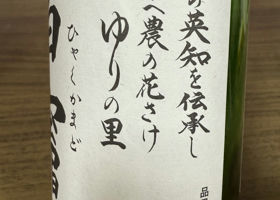 の英知を伝承し
へ農の花さけ
ゆりの里
ひゃくかまど
品